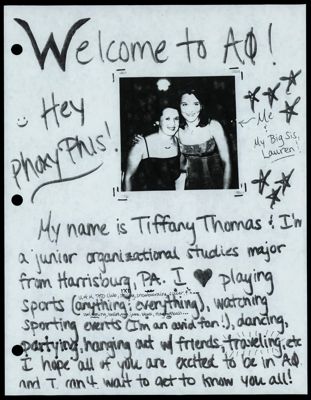 Welcome to AØ!
Hey
phoxy Phis!
Me
&
My Big Sis,
Lauren!
My name is Tiffany Thomas & I'm
a junior organizational studies major
from Harrisburg, PA. I ♥ playing
sports (anything; everything), watching
sporting events (I'm an avid fan!), dancing,
partying, hanging out w/ friends, traveling, etc
I hope all of you are excited to be in AØ
and I can't wait to get to know you all!